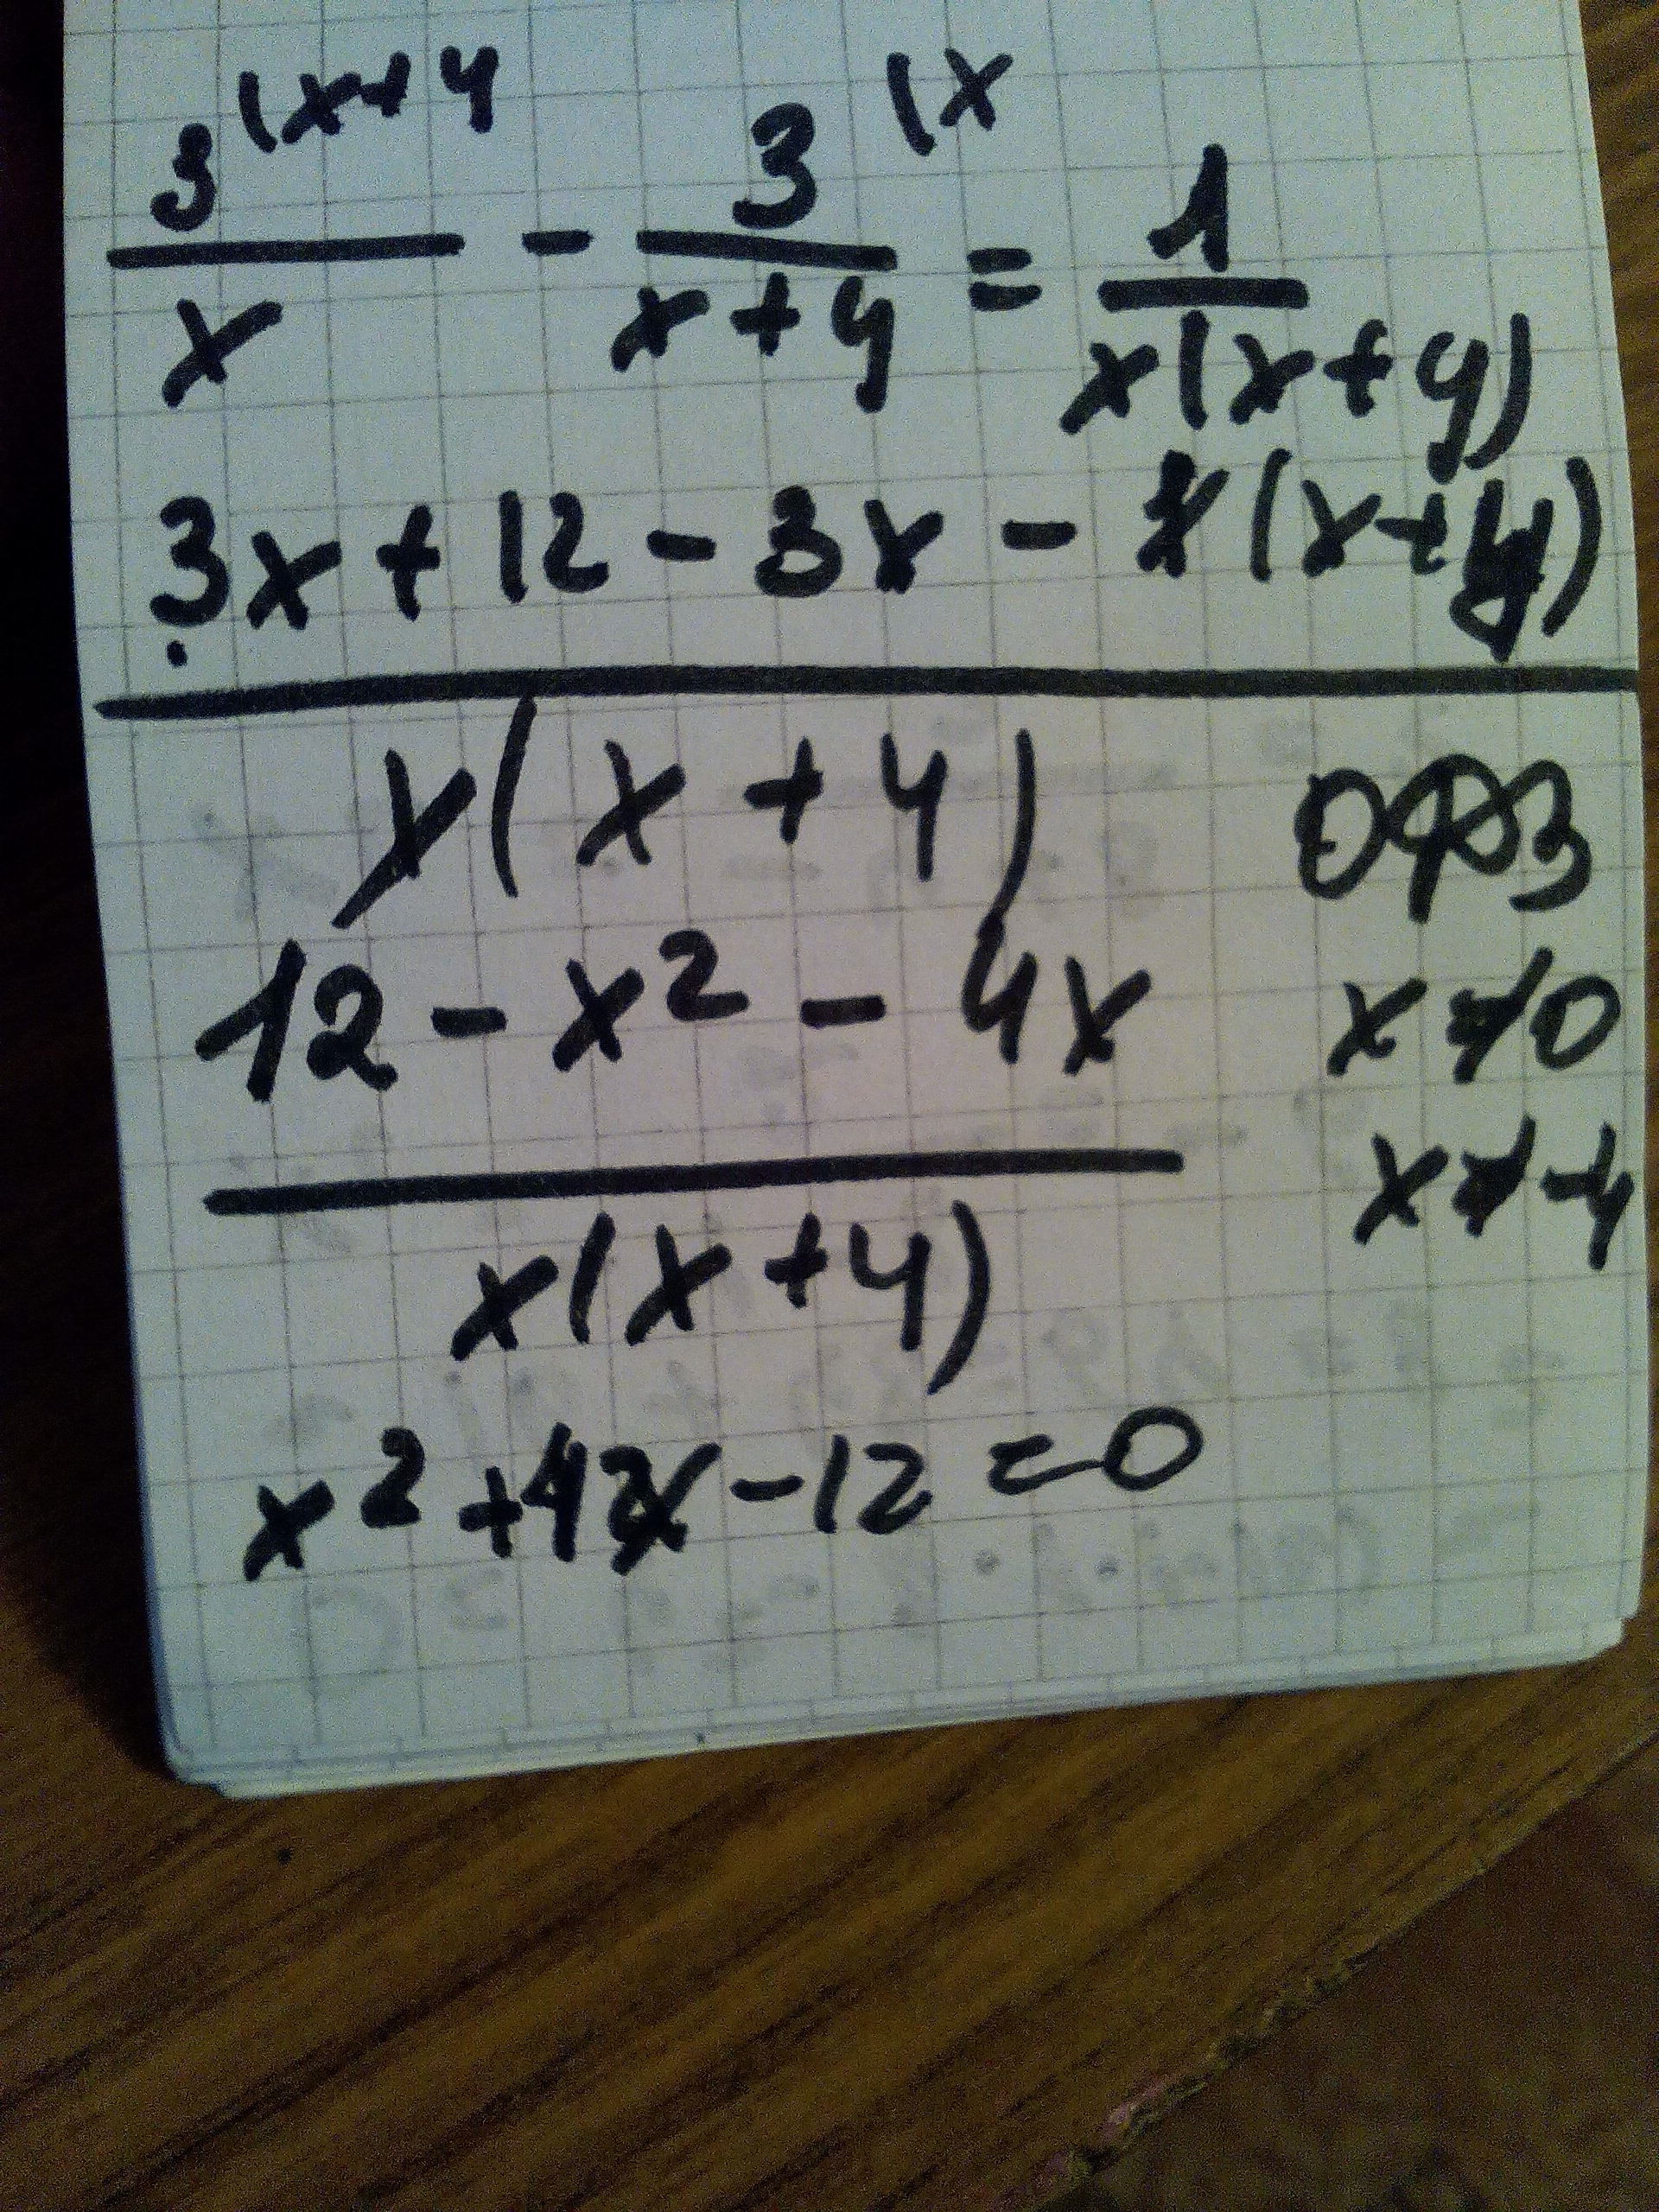 3 (x+4 / x - 3 (x / x+4 = 1 / x(x+4)
3x + 12 - 3x - x(x+4)
x(x+4) ОДЗ
12 - x² - 4x x≠0
x(x+4) x≠-4
x² + 4x - 12 = 0